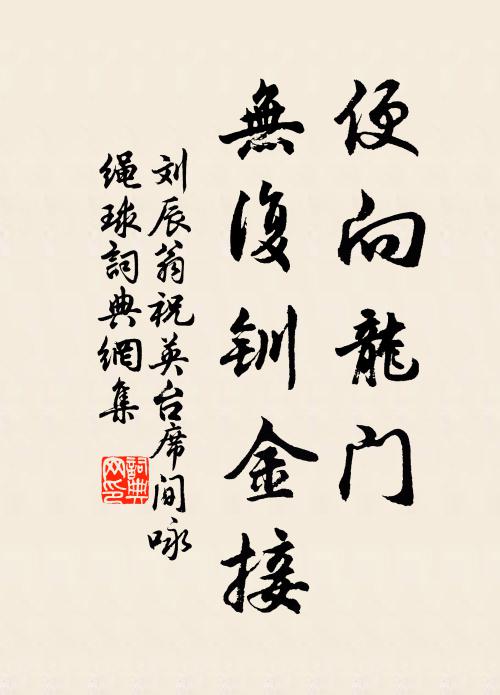 便向龍门
無復釧金接
刘辰翁祝英台席间咏
绳球詞典網集
詞典网印